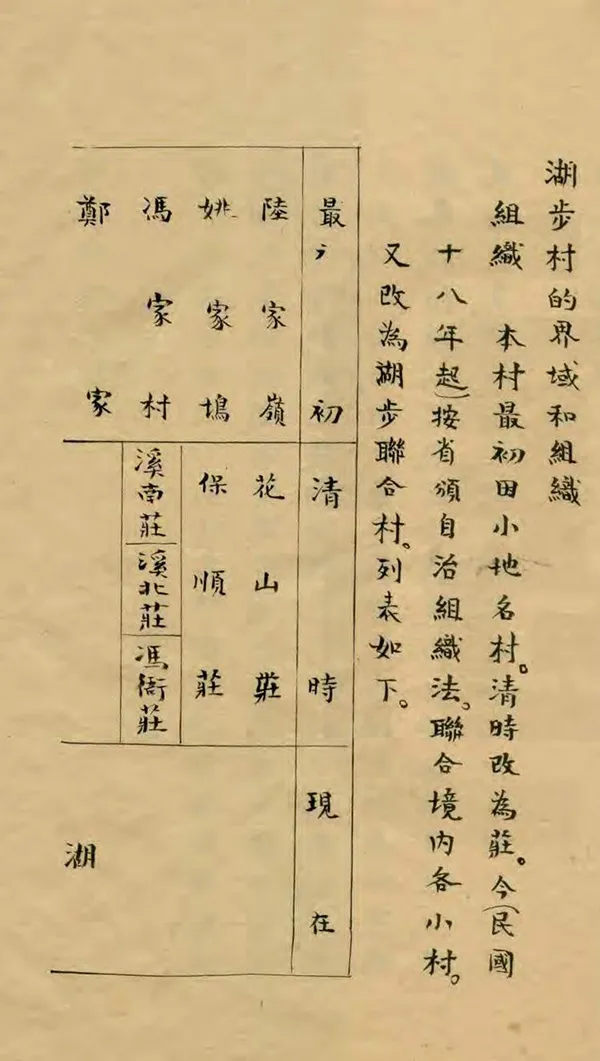 湖步村的界域和組織
組織　本村最初田小地名村。清時改為莊。今(民國
十八年起)按省頒自治組織法。聯合境内各小村。
又改為湖步聯合村。列表如下。
最初　清時　現在
陸家嶺　花山莊
姚家塢　保順莊
馮家村　溪南莊　溪北莊　馮衙莊
鄭家
湖